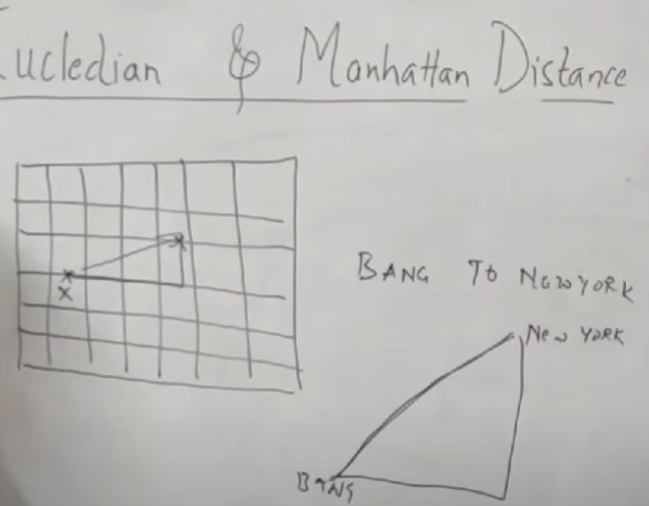 Eucledian & Manhattan Distance
BANG TO NEWYORK
New YORK
BANG